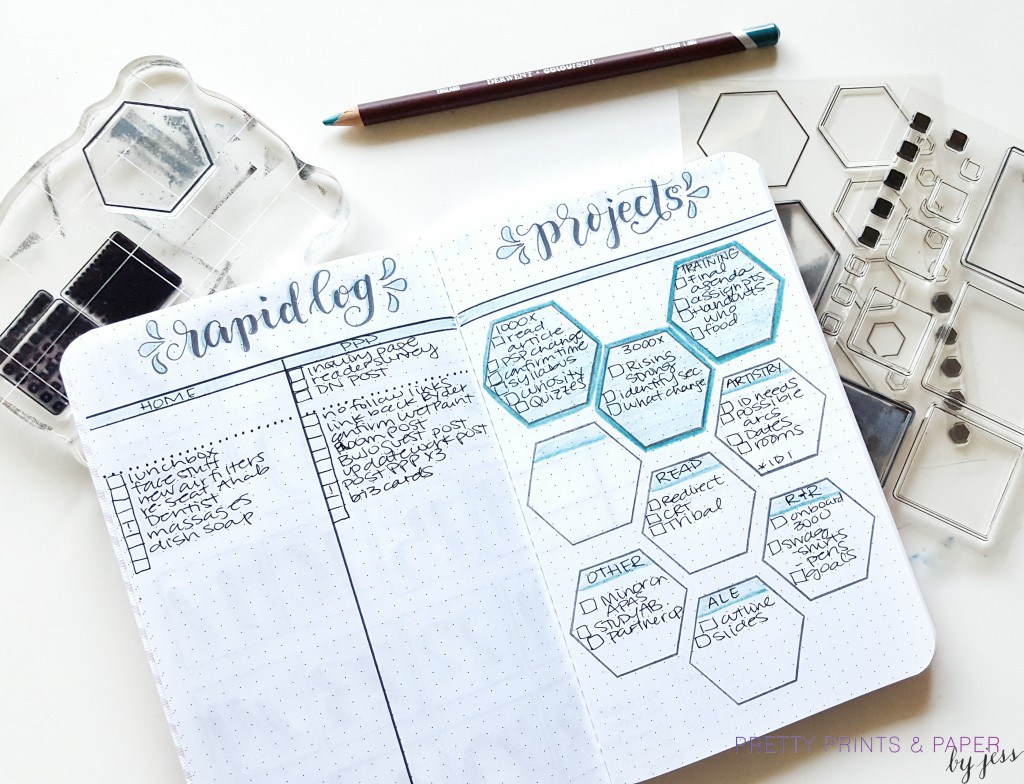 DERWENT
rapid log
HOME
lunchbox
face stuff
new air filters
re-seat Ahab
Dentist
massages
dish soap
PPP
inquiry page
reader survey
DN POST
no follow links
link back Ryder
confirm WetPaint
Loom post
BuJo Guest post
update wrt post
POST PPP x3
6x13 cards
projects
1000X
read
article
PSP change
confirm time
syllabus
curiosity
QUIZZES
3000X
Rising
strong
identify sec
what change
TRAINING
final
agenda
assignmts
handouts
who
food
ARTISTRY
ID needs
Possible
arcs
Dates
rooms
*IDI
READ
Redirect
CRT
Tribal
R+R
onboard
3000
swag
-shirts
-pens
goals
OTHER
Minor on
APAS
STUDY AB
Partner op
ALE
outline
slides
PRETTY PRINTS & PAPER
by jess